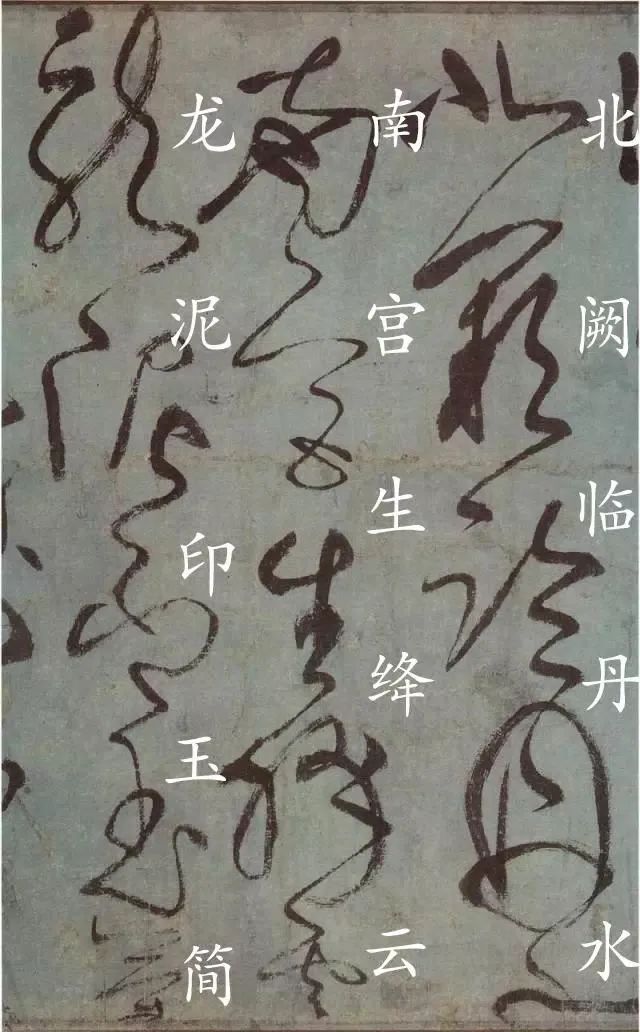 北阙临丹水
南宫生绛云
龙泥印玉简